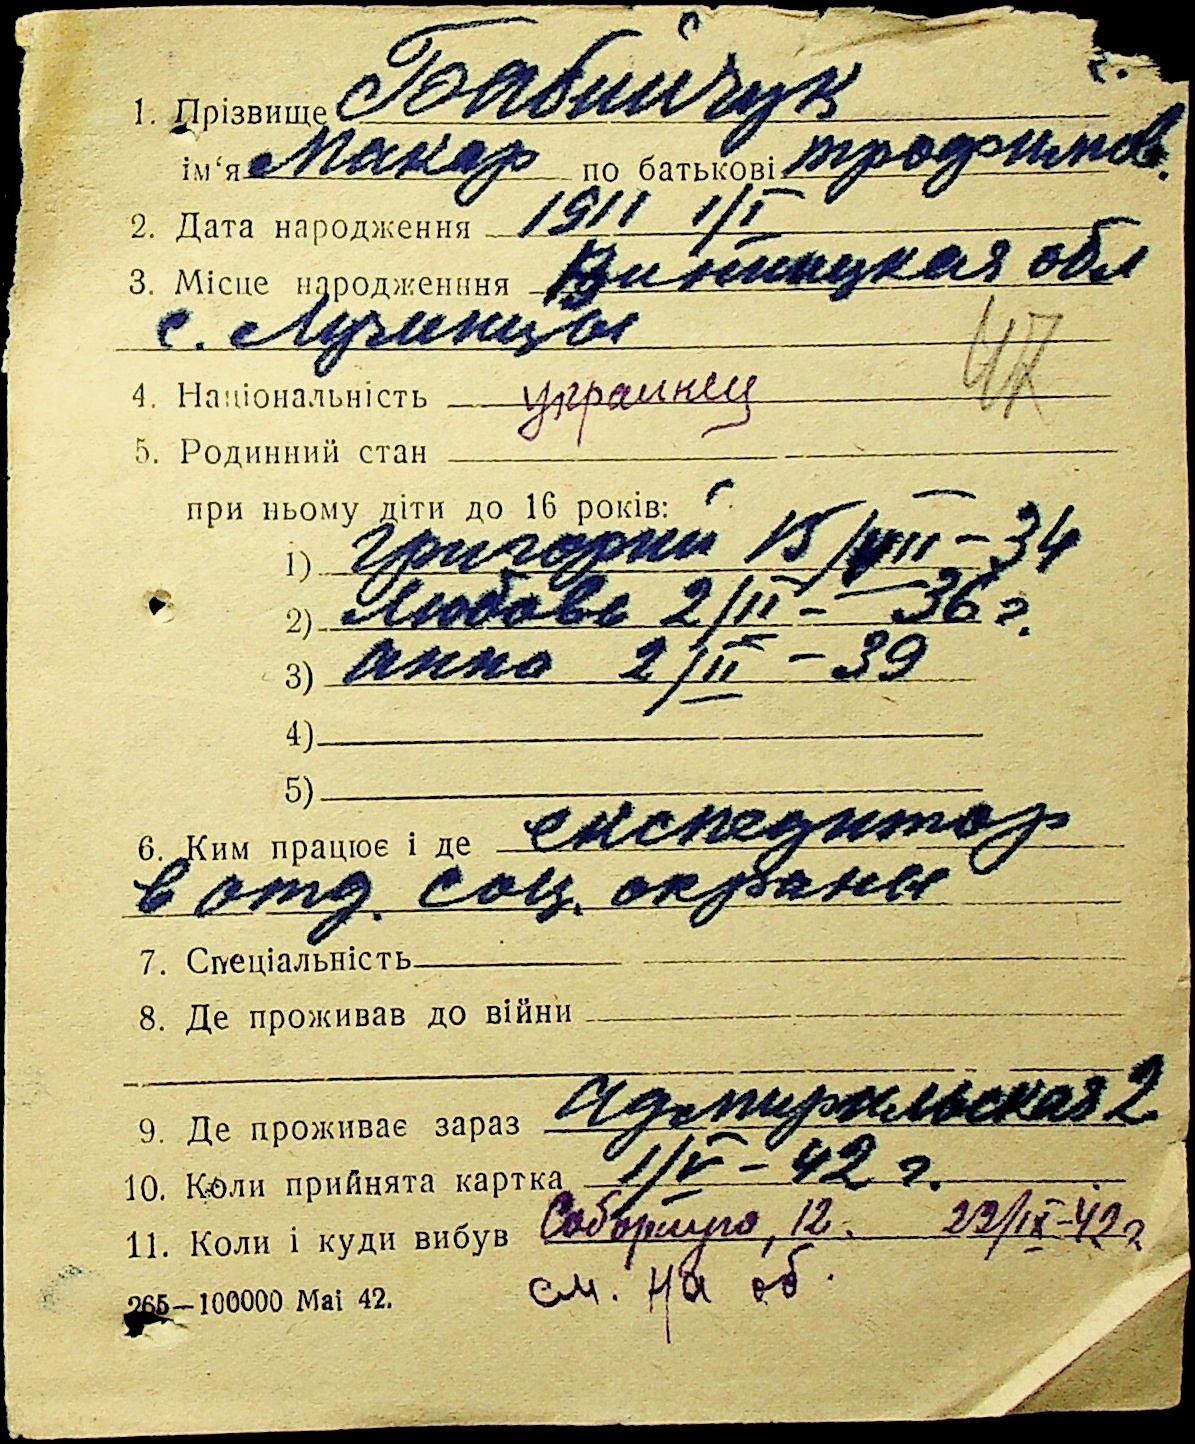 1. Прізвище Бабийчук
ім'я Макар по батькові трофимов.
2. Дата народження 1911 1/I
3. Місце народженння Винницкая обл
с. Лучинцы
47
4. Національність украинец
5. Родинний стан
при ньому діти до 16 років:
1) Григорий 15/VII – 34
2) Любовь 2/II – 36 г.
3) Анна 2/II – 39
4)
5)
6. Ким працює і де експедитор
в отд. соц. охраны
7. Спеціальність
8. Де проживав до війни
9. Де проживає зараз Адмиральская 2
10. Коли прийнята картка 1/V – 42 г.
11. Коли і куди вибув Соборную, 12. 22/IX-42 г
см. на об.
265—100000 Mai 42.